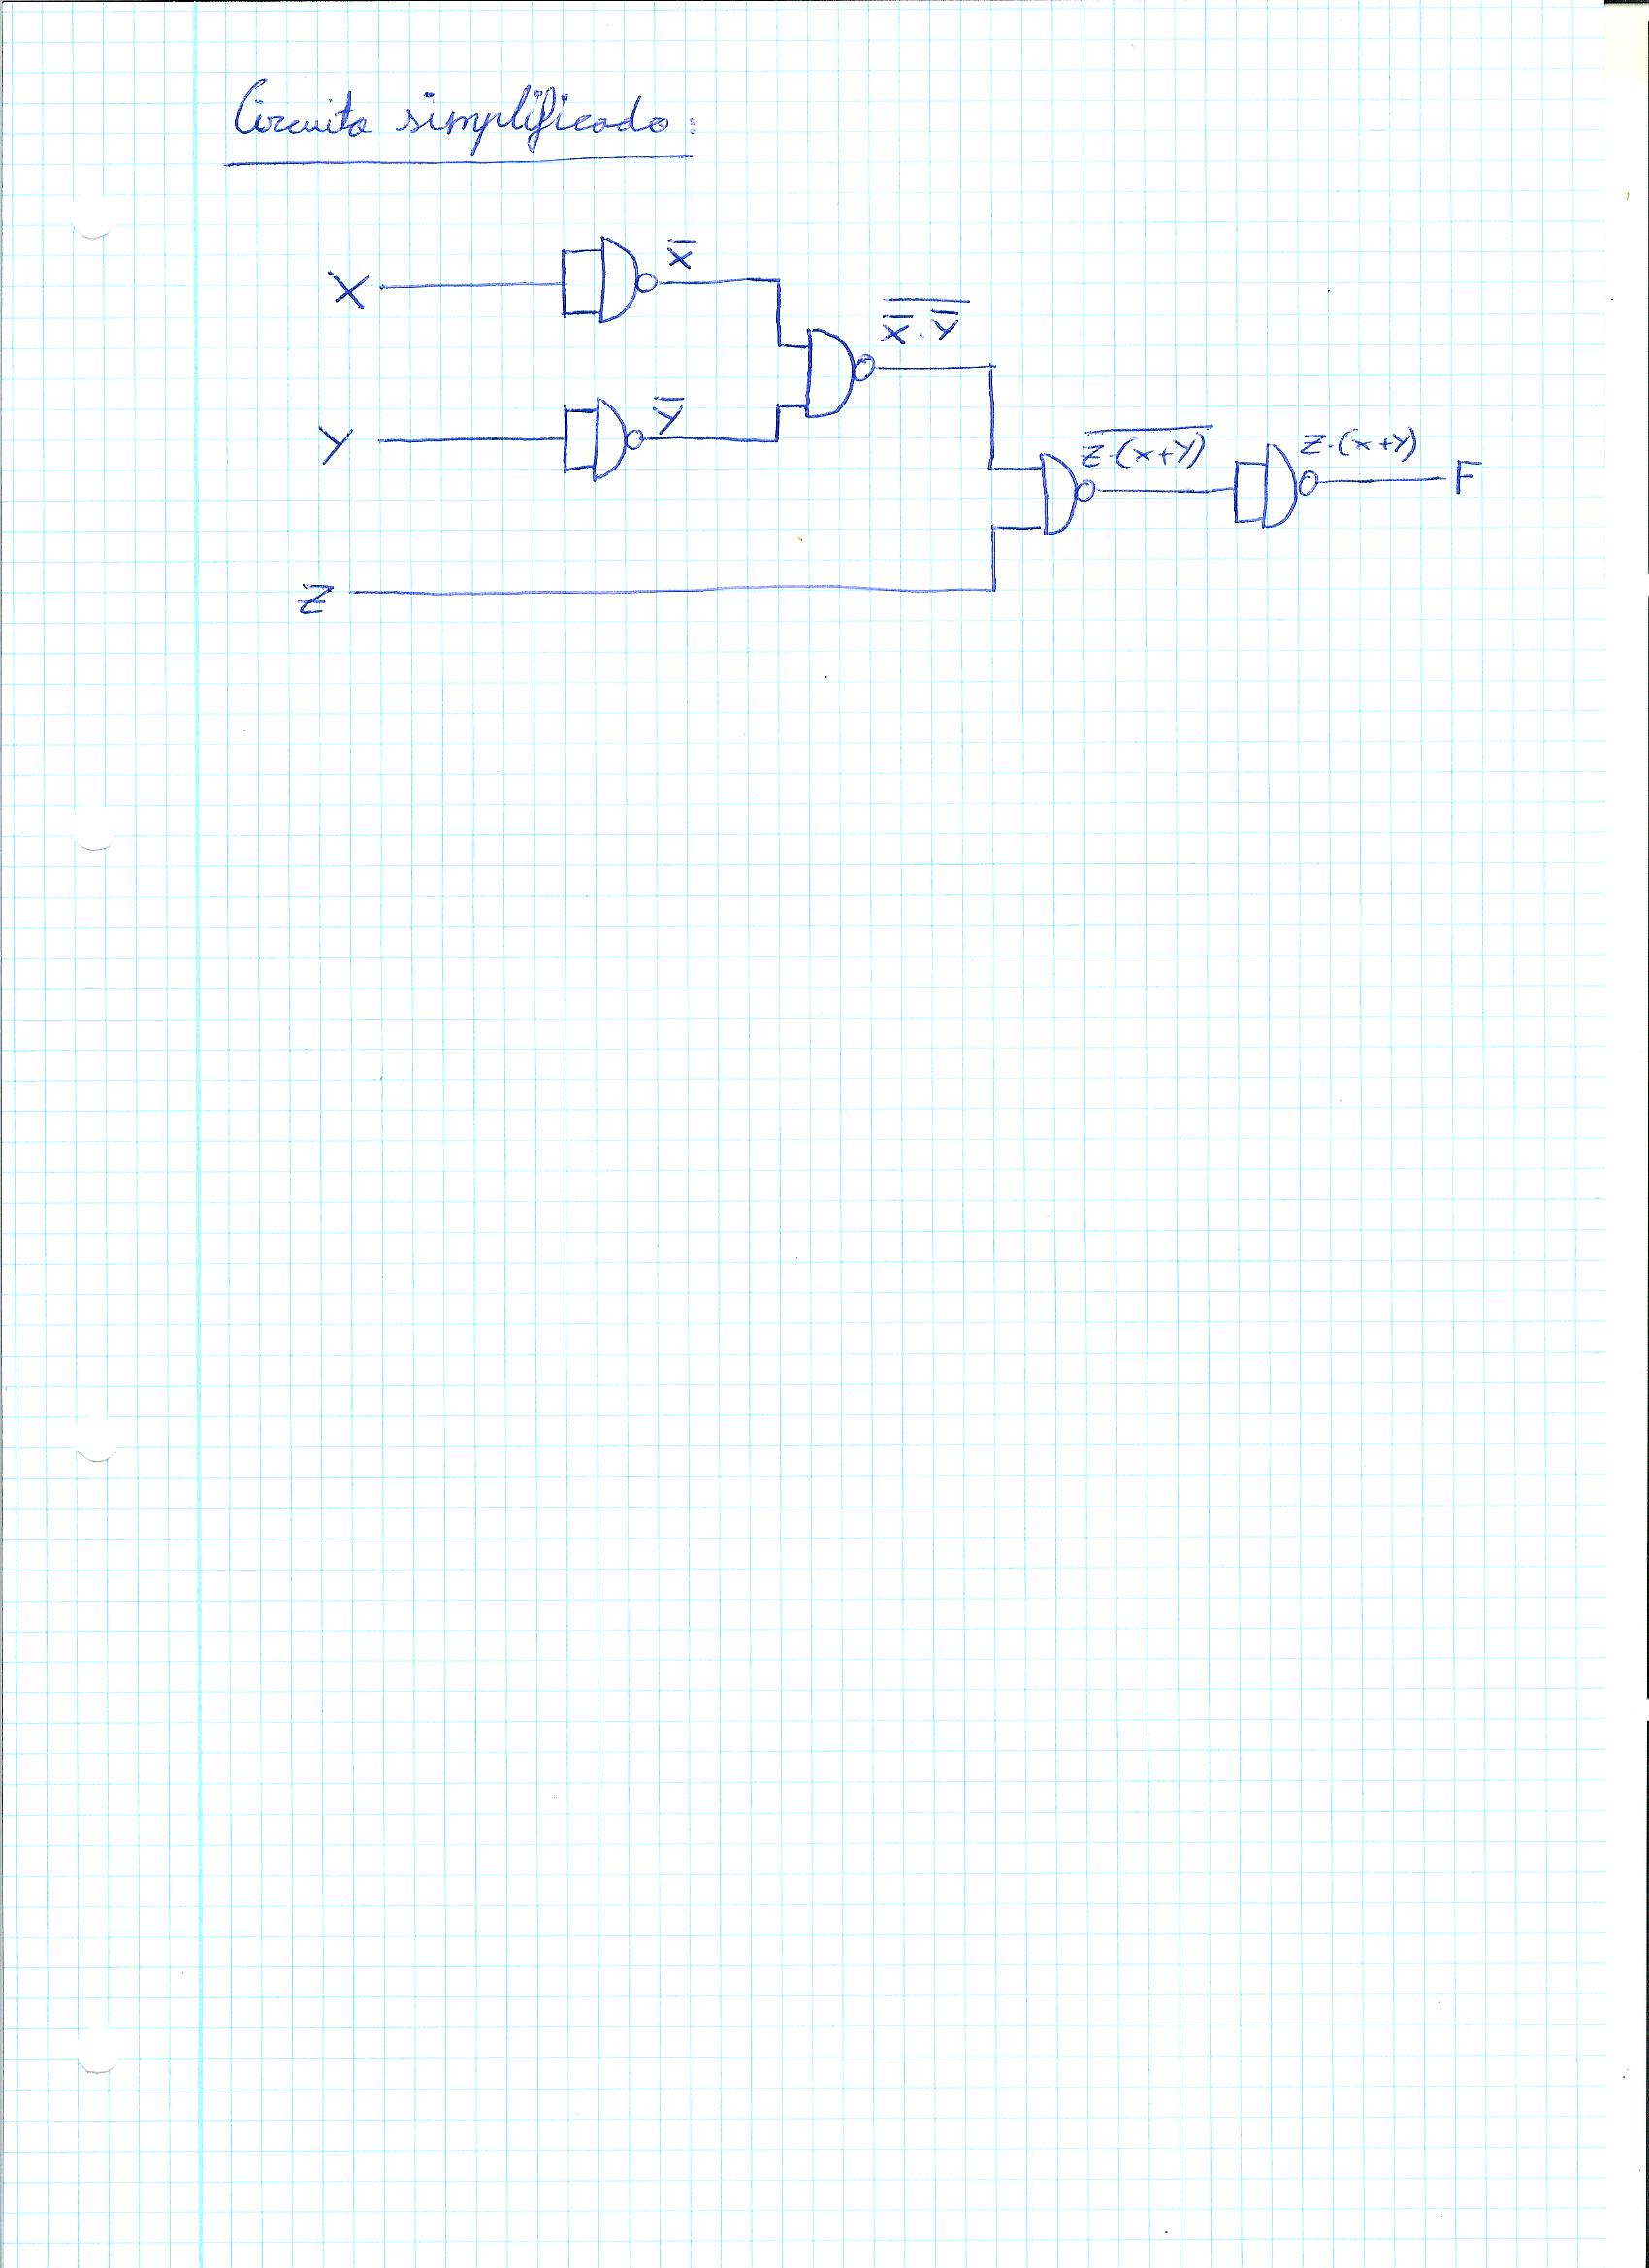 Circuito simplificado:
X
X̅
X̅ . Y̅
Y
Y̅
Z·(X+Y)
Z·(X+Y)
F
Z